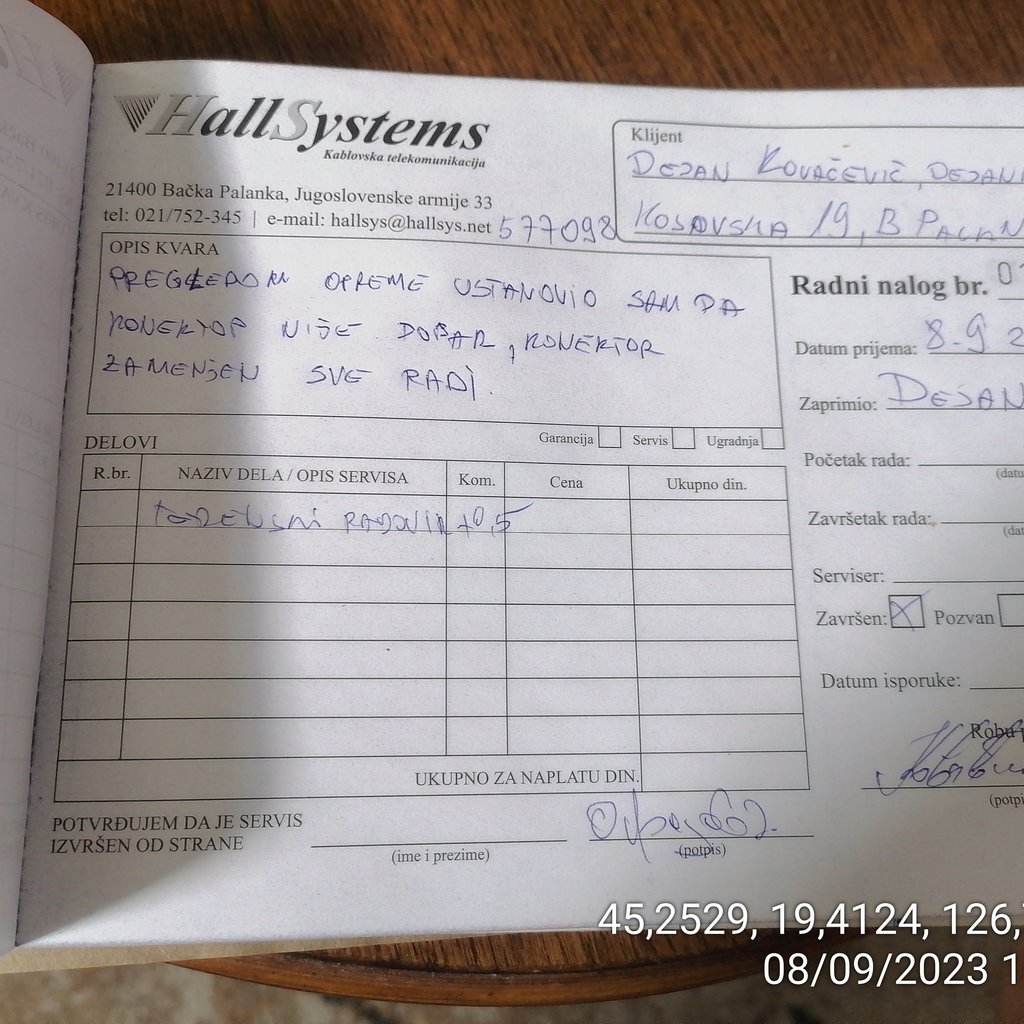 HallSystems
Kablovska telekomunikacija
21400 Bačka Palanka, Jugoslovenske armije 33
tel: 021/752-345 | e-mail: hallsys@hallsys.net 577098
Klijent
DEJAN KOVAČEVIĆ, DEJAN
KOSOVSKA 19, B PALAN
OPIS KVARA
PREGLEDOM OPREME USTANOVIO SAM DA
KONEKTOR NIJE DOBAR, KONEKTOR
ZAMENJEN SVE RADI.
Radni nalog br. 0
Datum prijema: 8.9 2
Zaprimio: DEJAN
Početak rada:
(datu
Završetak rada:
(dat
Serviser:
Završen: X Pozvan
Datum isporuke:
Robu
(potpi
DELOVI
Garancija Servis Ugradnja
R.br. NAZIV DELA / OPIS SERVISA Kom. Cena Ukupno din.
0,5
UKUPNO ZA NAPLATU DIN.
POTVRĐUJEM DA JE SERVIS
IZVRŠEN OD STRANE
(ime i prezime)
(potpis)
45,2529, 19,4124, 126,
08/09/2023 1